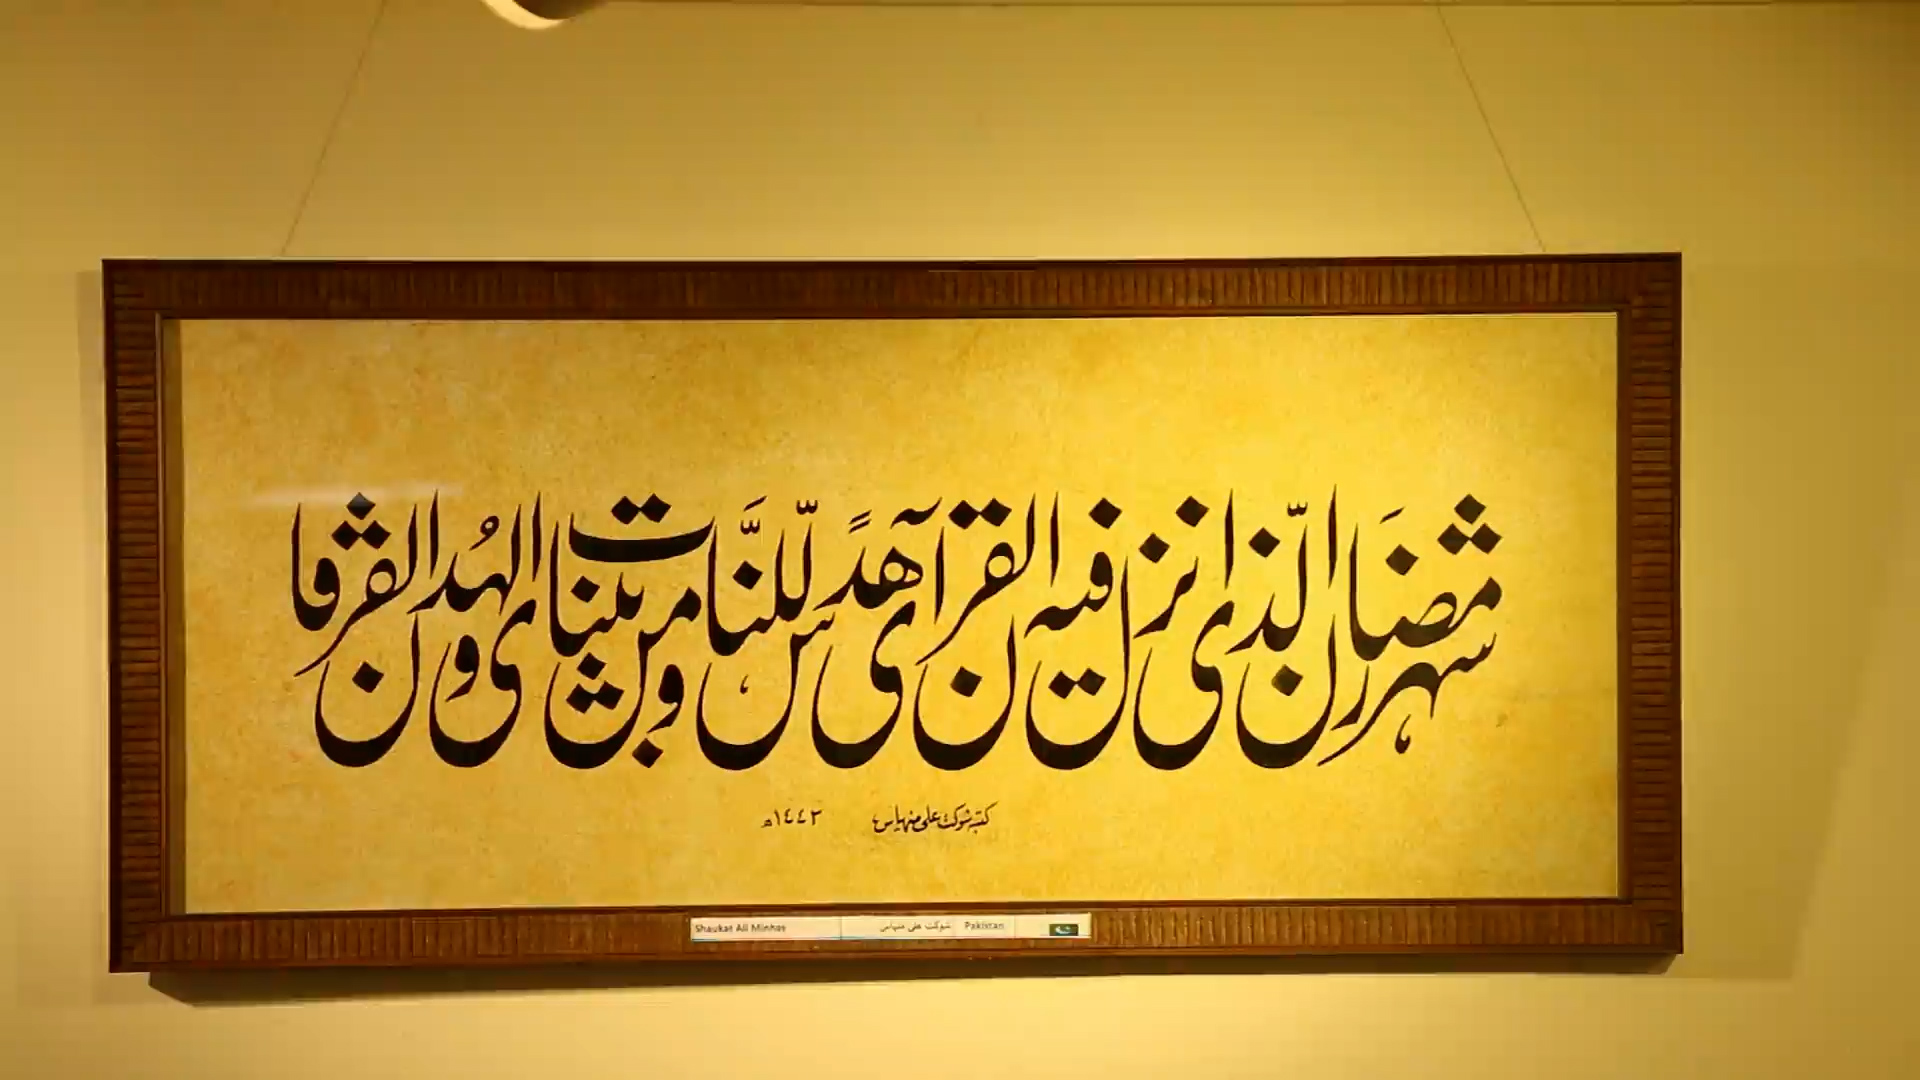 شهر رمضان الّذی انزل فیه القرآن هدًی للنّاس و بینات من الهُدی و الفرقان
کتبه شوکت علی منهاس ١٤٤٢ھ
Shaukat Ali Minhas شوکت علی منہاس Pakistan